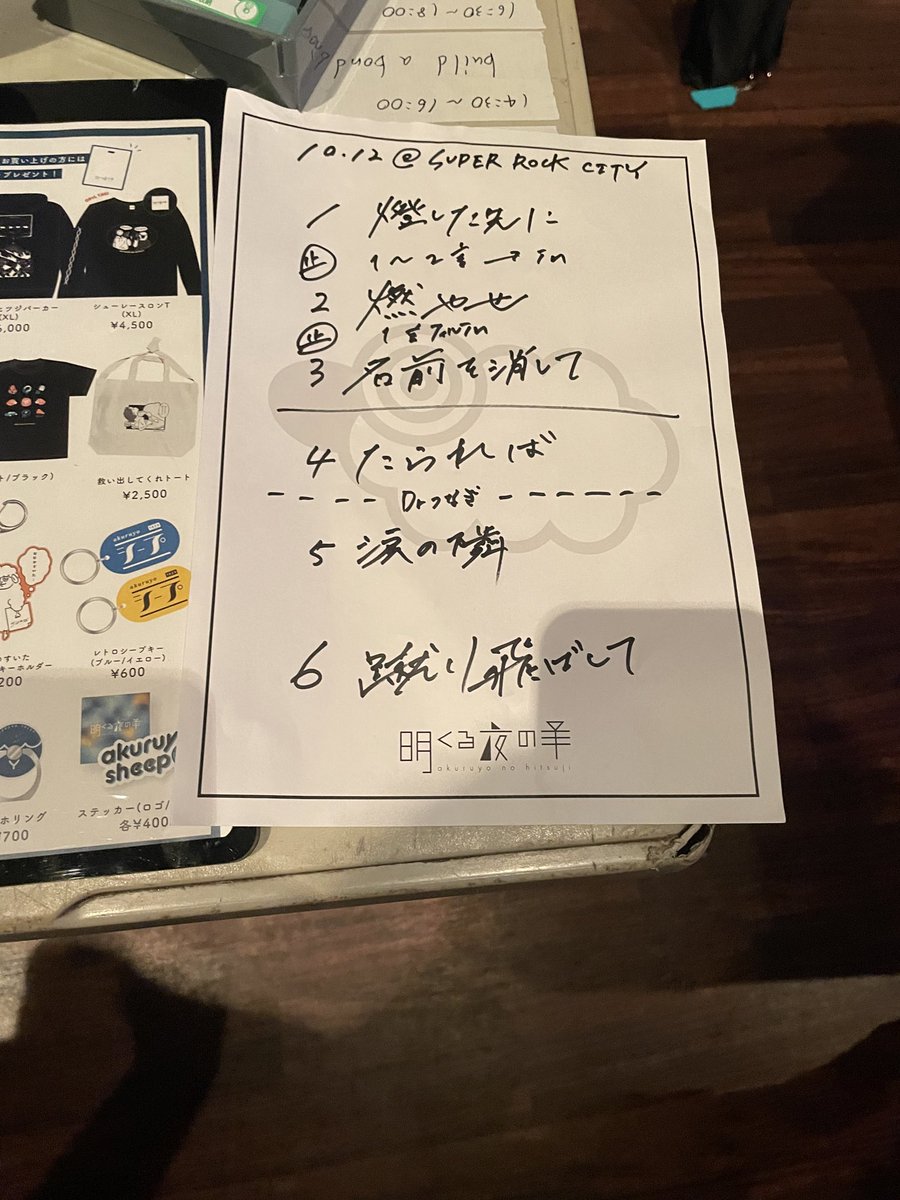 (6:30~(8:00
build a bond
(4:30~16:00
10.12 @ SUPER ROCK CITY
1 燈した先に
止 1~2言→In
2 燃やせ
止
3 名前を消して
4 たられば
Drつなぎ
5 涙の隣
6 蹴り飛ばして
明くる夜の羊
akuruyo no hitsuji
お買い上げの方には
プレゼント!
ツジパーカー
(XL)
,000
シューレースロンT
(XL)
¥4,500
/ブラック)
救い出してくれトート
¥2,500
akuruyo
akuruyo
のすいた
キーホルダー
200
レトロシープキー
(ブルー/イエロー)
¥600
明くる夜の羊
akuruyo
sheep
ホリング
¥700
ステッカー(ロゴ/
各¥400